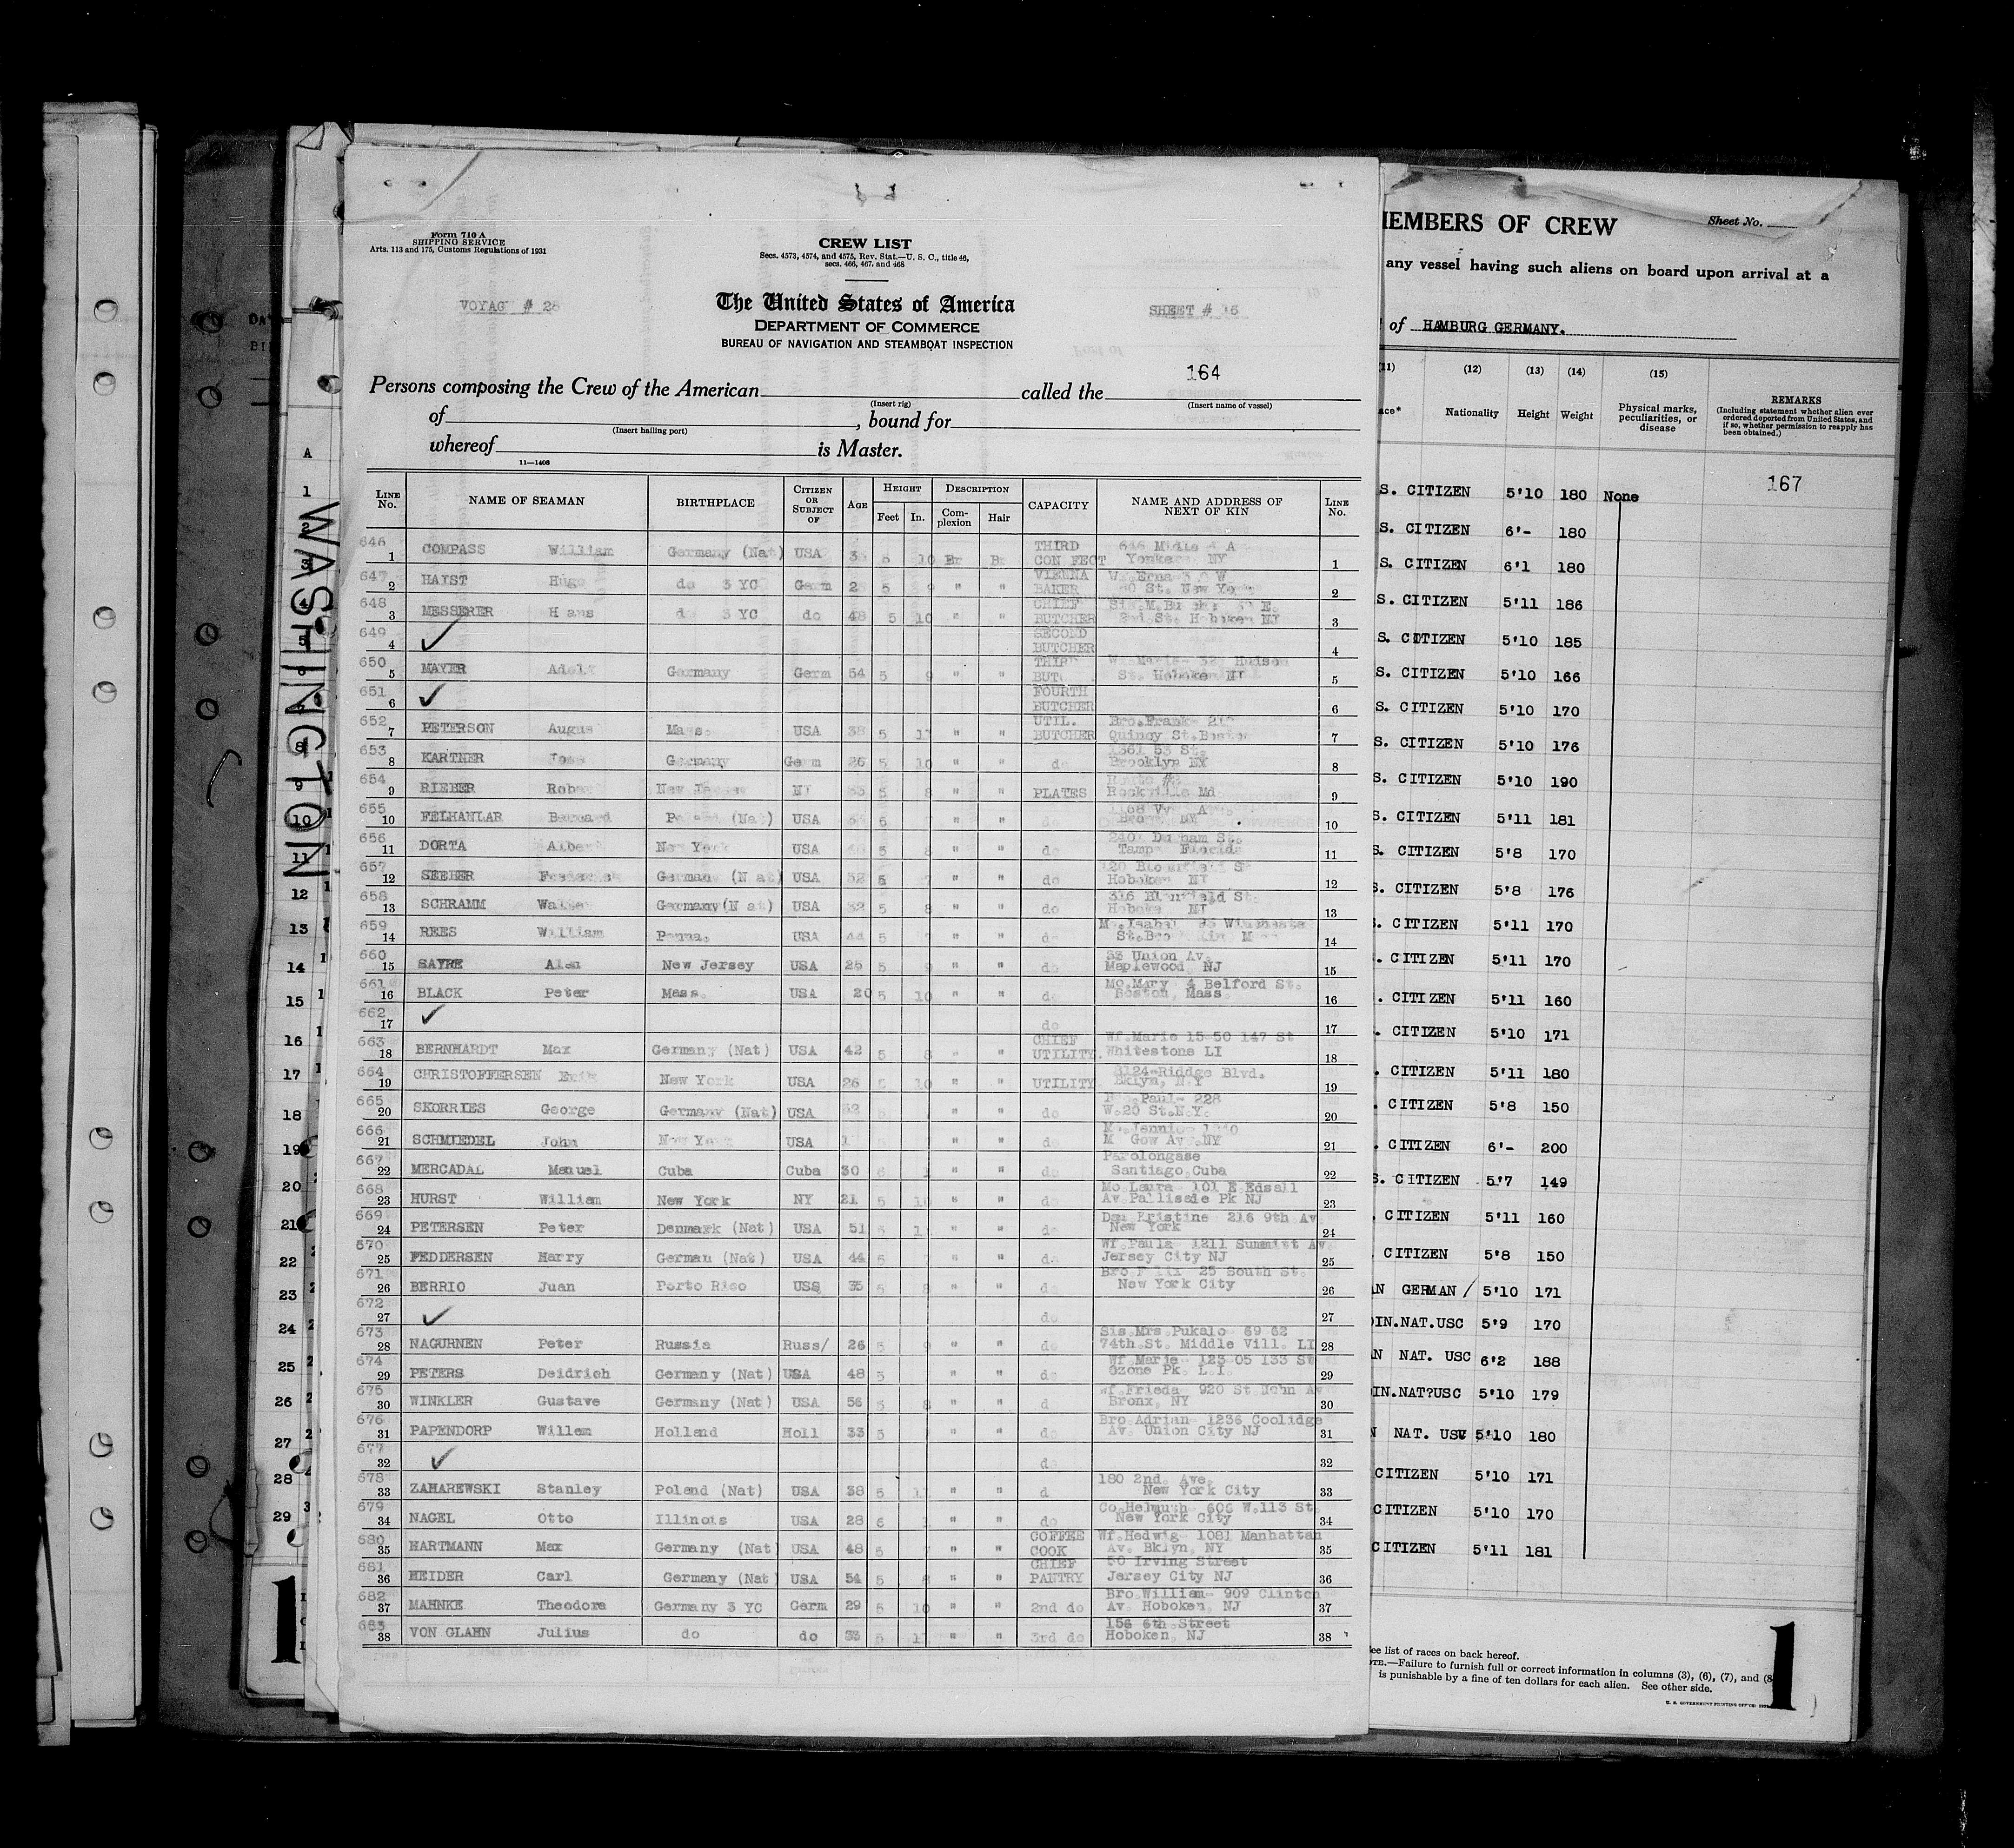 Form 710 A
SHIPPING SERVICE
Arts. 113 and 175, Customs Regulations of 1931
CREW LIST
Secs. 4573, 4574, and 4575, Rev. Stat.—U. S. C., title 46,
secs. 466, 467, and 468
VOYAG # 28
The United States of America
SHEET # 16
DEPARTMENT OF COMMERCE
BUREAU OF NAVIGATION AND STEAMBOAT INSPECTION
164
Persons composing the Crew of the American called the
(Insert rig) (Insert name of vessel)
of , bound for
(Insert hailing port)
whereof is Master.
11—1408
LINE No. NAME OF SEAMAN BIRTHPLACE CITIZEN OR SUBJECT OF AGE HEIGHT Feet In. DESCRIPTION Complexion Hair CAPACITY NAME AND ADDRESS OF NEXT OF KIN LINE No.
646 1 COMPASS William Germany (Nat) USA 5 10 Br Br THIRD CONFECT Yonke NY 1
647 2 HAYST Hugo do 3 YC Germ 5 9 " " VIENNA BAKER St. New Yo 2
648 3 MESSERER Hans do 3 YC do 48 5 10 " " CHIEF BUTCHER 2nd St. Hoboken NJ 3
649 4 ✓ SECOND BUTCHER 4
650 5 MAYER Adolf Germany Germ 54 5 9 " " THIRD BUT St. Hoboken NJ 5
651 6 ✓ FOURTH BUTCHER 6
652 7 PETERSON Augus Mass. USA 38 5 11 " " UTIL. BUTCHER Bro.Frank- Quincy St.Boston 7
653 8 KARTNER Germany Germ 26 5 10 " " do 1361 53 St. Brooklyn NY 8
654 9 RIEBER Rober New Jersey NJ 5 8 " " PLATES Rockville Md. 9
655 10 FELHANLAR Bernard Poland (Nat) USA 5 " " do Bronx NY 10
656 11 DORTA Albert New York USA 5 8 " " do Durham St. Tampa Florida 11
657 12 SEEBER German (Nat) USA 52 5 " " do Hoboken NJ 12
658 13 SCHRAMM Walter Germany(Nat) USA 32 5 8 " " do 316 Blomfield St. Hoboke NJ 13
659 14 REES William Penna. USA 44 5 " " do 14
660 15 SAYRE Alen New Jersey USA 25 5 9 " " do 33 Union Av. Maplewood, NJ 15
661 16 BLACK Peter Mass. USA 20 5 10 " " do Mo.Mary 4 Belford St. Boston, Mass. 16
662 17 ✓ do 17
663 18 BERNHARDT Max Germany (Nat) USA 42 5 8 " " CHIEF UTILITY. Wf.Marie 15-50 147 St Whitestone LI 18
664 19 CHRISTOFFERSEN Eric New York USA 26 5 10 " " UTILITY Riddge Blvd. Bklyn, N.Y 19
665 20 SKORRIES George Germany (Nat) USA 52 " " do Paul- 228 W.20 St.N.Y. 20
666 21 SCHMIEDEL John New York USA " " do Gow Av.NY 21
667 22 MERCADAL Manuel Cuba Cuba 30 " " do Parolongase Santiago,Cuba 22
668 23 HURST William New York NY 21 5 10 " " do Mo.Laura 101 E Edsall Av Pallisade Pk NJ 23
669 24 PETERSEN Peter Denmark (Nat) USA 51 5 11 " " do Kristine 216 9th Av New York 24
670 25 FEDDERSEN Harry German (Nat) USA 44 5 " " do Wf.Paula 1211 Summitt Av Jersey City NJ 25
671 26 BERRIO Juan Porto Rico USS 35 5 8 " " do 25 South St. New York City 26
672 27 ✓ do 27
673 28 NAGURNEN Peter Russia Russ/ 26 5 9 " " do Sis.Mrs.Pukalo 69 62 74th.St. Middle Vill. LI 28
674 29 PETERS Deidrich Germany (Nat) USA 48 5 " " do Wf Marie 123 05 133 St Ozone Pk. L.I. 29
675 30 WINKLER Gustave Germany (Nat) USA 56 5 8 " " do Wf.Frieda 920 St John Av Bronx, NY 30
676 31 PAPENDORP Willem Holland Holl 33 5 " " do Bro Adrian 1236 Coolidge Av. Union City NJ 31
677 32 ✓ do 32
678 33 ZAHAREWSKI Stanley Poland (Nat) USA 38 5 11 " " d 180 2nd. Ave. New York City 33
679 34 NAGEL Otto Illinois USA 28 6 1 " " do Co.Helmuth 606 W.113 St. New York City 34
680 35 HARTMANN Max Germany (Nat USA 48 5 " " COFFEE COOK Wf.Hedwig 1081 Manhattan Av. Bklyn, NY 35
681 36 HEIDER Carl Germany (Nat USA 54 5 8 " " CHIEF PANTRY 50 Irving Street Jersey City NJ 36
682 37 MAHNKE Theodore Germany 3 YC Germ 29 5 10 " " 2nd do Bro.William- 909 Clinton Av. Hoboken, NJ 37
683 38 VON GLAHN Julius do do 33 5 11 " " 3rd do 156 6th Street Hoboken, NJ 38
WASHINGTON
A
1
2
3
4
5
6
7
8
9
10
11
12
13
14
15
16
17
18
19
20
21
22
23
24
25
26
27
28
29
1
MEMBERS OF CREW
Sheet No.
any vessel having such aliens on board upon arrival at a
of HAMBURG GERMANY.
(11) (12) (13) (14) (15)
Nationality Height Weight Physical marks, peculiarities, or disease
REMARKS
(Including statement whether alien ever ordered deported from United States, and if so, whether permission to reapply has been obtained.)
167
S. CITIZEN 5'10 180 None
S. CITIZEN 6'- 180
S. CITIZEN 6'1 180
S. CITIZEN 5'11 186
S. CITIZEN 5'10 185
S. CITIZEN 5'10 166
S. CITIZEN 5'10 170
S. CITIZEN 5'10 176
S. CITIZEN 5'10 190
S. CITIZEN 5'11 181
S. CITIZEN 5'8 170
S. CITIZEN 5'8 176
. CITIZEN 5'11 170
. CITIZEN 5'11 170
. CITIZEN 5'11 160
. CITIZEN 5'10 171
. CITIZEN 5'11 180
. CITIZEN 5'8 150
. CITIZEN 6'- 200
S. CITIZEN 5'7 149
. CITIZEN 5'11 160
CITIZEN 5'8 150
AN GERMAN / 5'10 171
DIN.NAT.USC 5'9 170
AN NAT. USC 6'2 188
DIN.NAT?USC 5'10 179
N NAT. USC 5'10 180
CITIZEN 5'10 171
CITIZEN 5'10 170
CITIZEN 5'11 181
See list of races on back hereof.
NOTE.—Failure to furnish full or correct information in columns (3), (6), (7), and (8
is punishable by a fine of ten dollars for each alien. See other side.
U. S. GOVERNMENT PRINTING OFFICE:
1